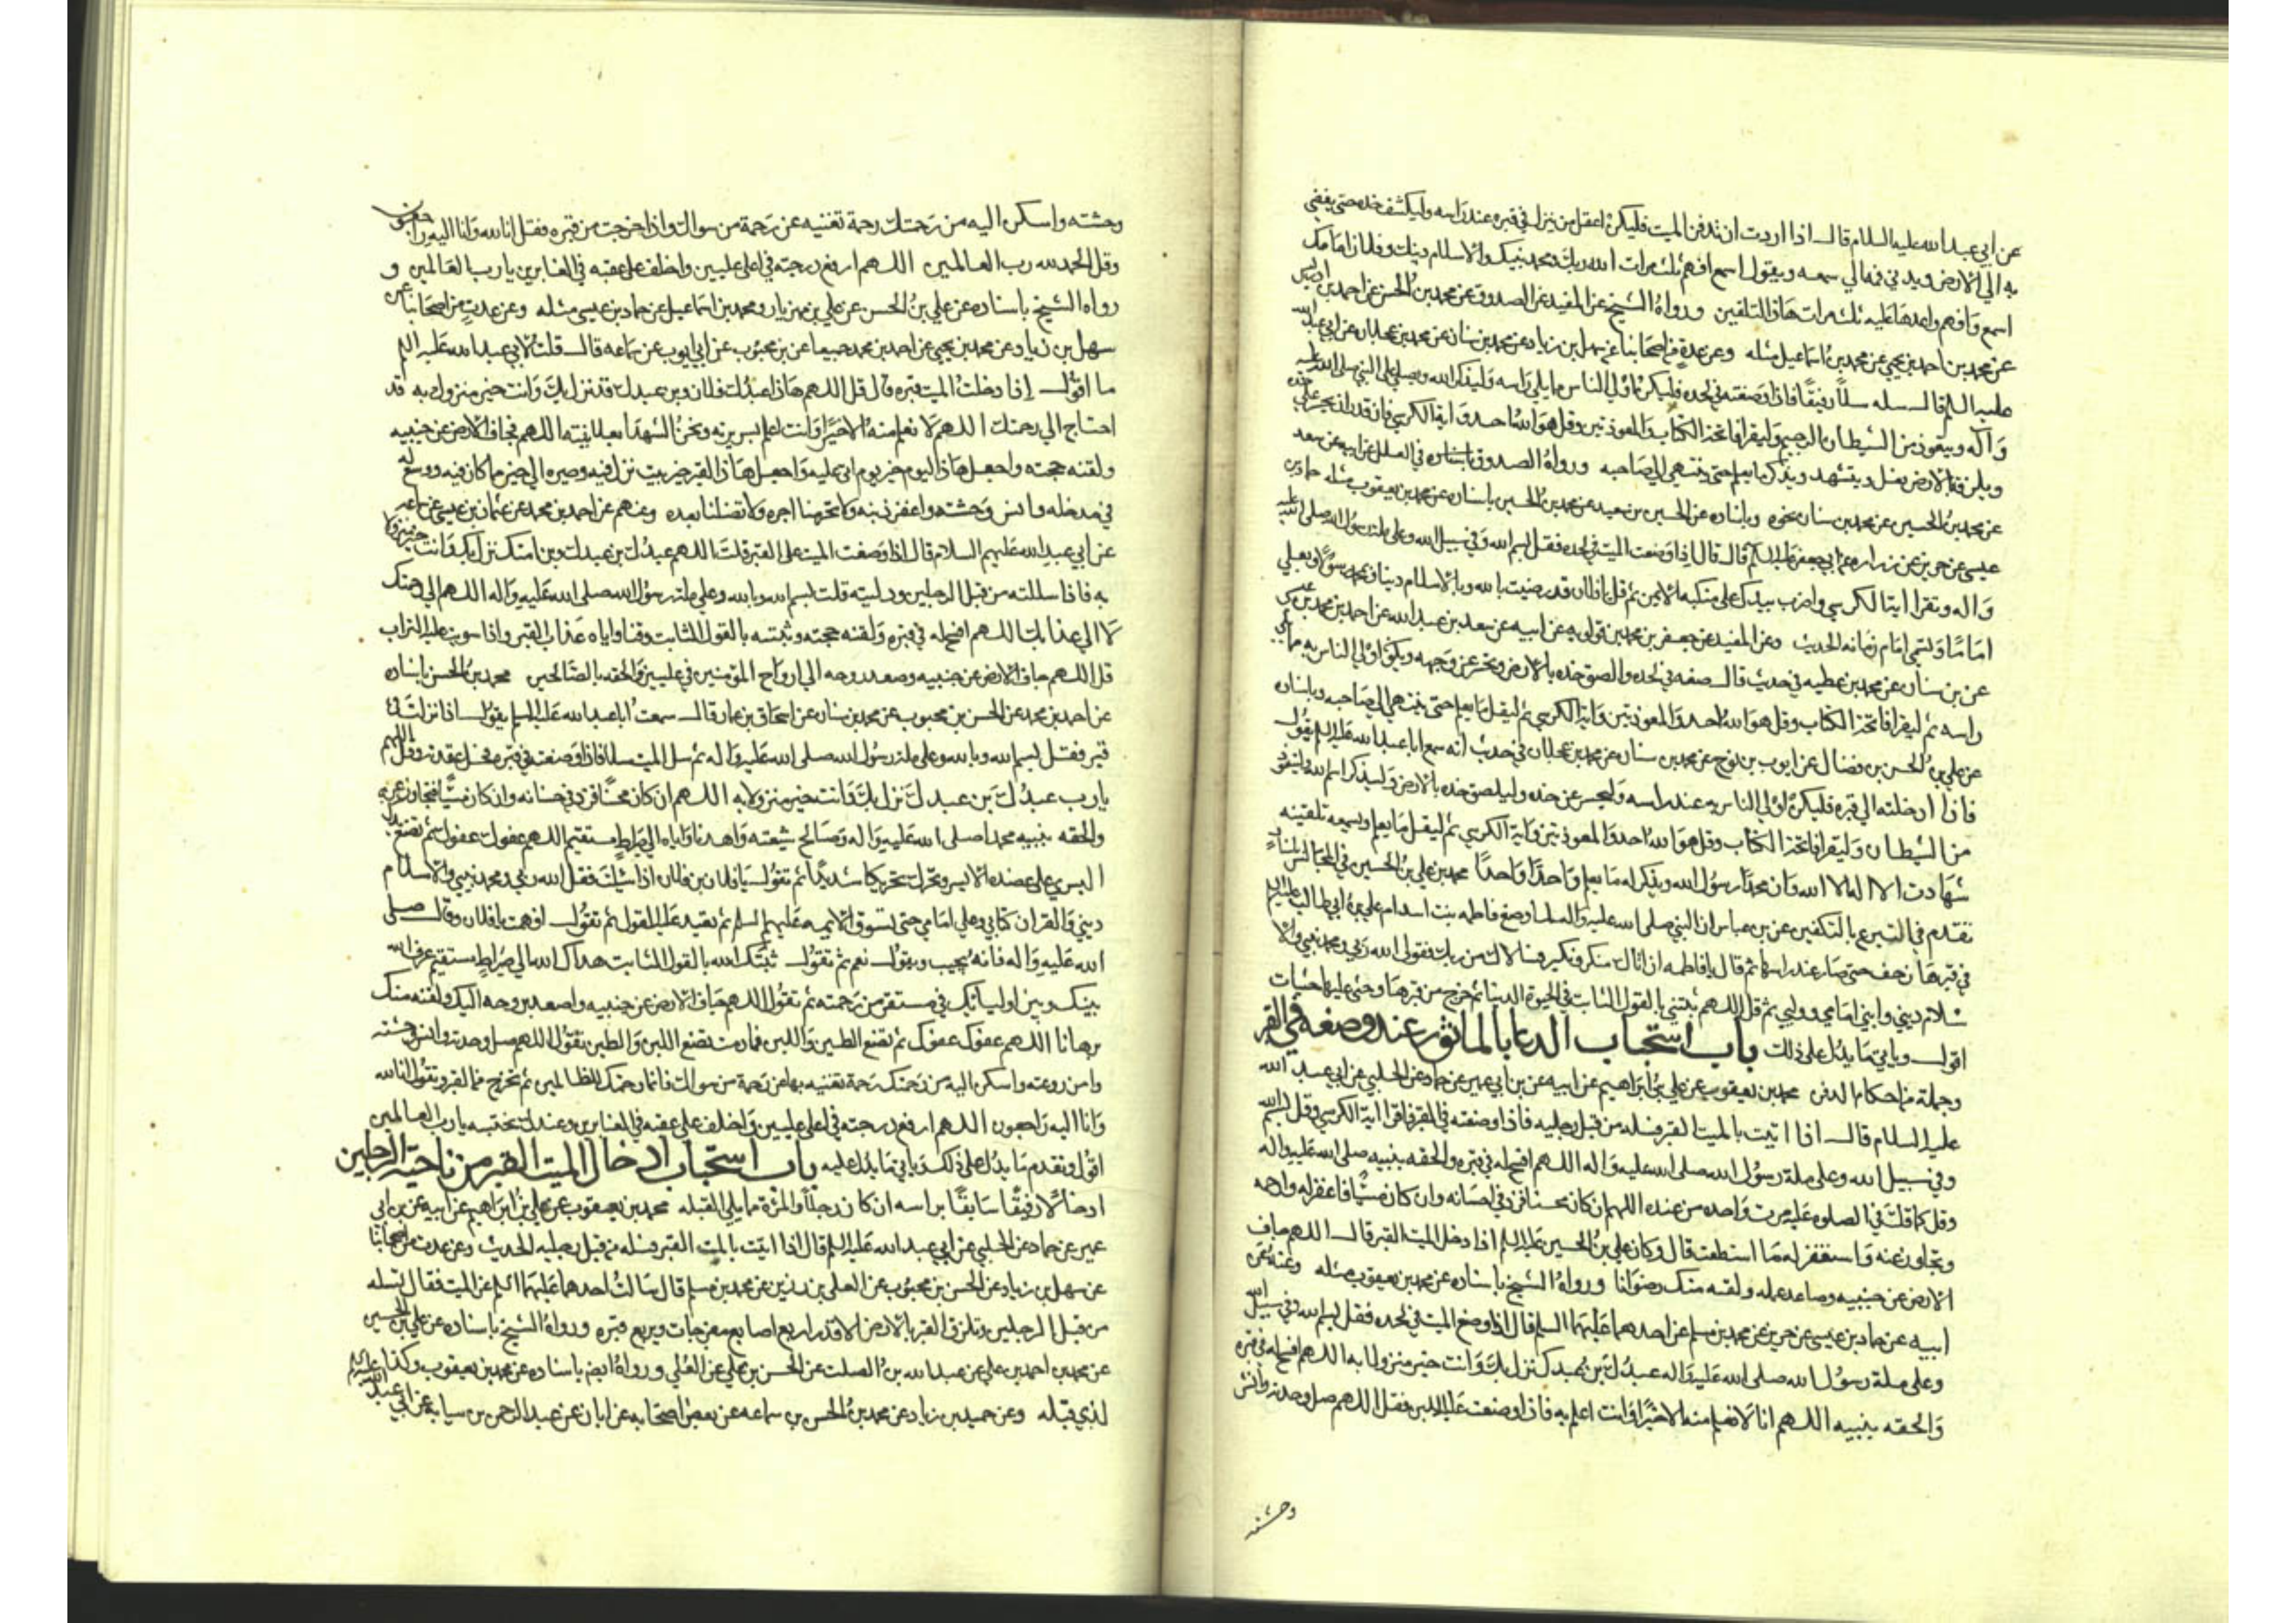 عن ابي عبد الله عليه السلام قال اذا اردت ان تدفن الميت فليكن اعقل من ينزل في قبره عند راسه وليكشف خده حتى يفضي
به الي الارض ويدني فمه الي سمعه ويقول اسمع افهم ثلث مرات الله ربك ومحمد نبيك والاسلام دينك وفلان امامك
اسمع وافهم واعدها عليه ثلث مرات هذا التلقين ورواه الشيخ عن المفيد عن الصدوق عن محمد بن الحسن عن احمد بن ادريس
عن محمد بن احمد بن يحيي عن محمد بن اسماعيل مثله وعن عدة من اصحابنا عن سهل بن زياد عن محمد بن سنان عن محمد بن عجلان عن ابي عبد الله
عليه السلم قال سله سلا رفيقا فاذا وضعته في لحده فليكن اولي الناس مما يلي راسه وليذكر الله ويصلي على النبي صلى الله عليه
وآله ويتعوذ من الشيطان الرجيم وليقرا فاتحة الكتاب والمعوذتين وقل هو الله احد وآية الكرسي فان قدر ان يحسر عن خده
ويلزقه بالارض فعل ويتشهد ويذكر ما يعلم حتى ينتهي الي صاحبه ورواه الصدوق باسناده في العلل عن ابيه عن سعد
عن محمد بن الحسين عن محمد بن سنان نحوه وباسناده عن الحسين بن سعيد عن محمد بن الحسين باسناده عن محمد بن يعقوب مثله حماد بن
عيسي عن حريز عن زراره عن ابي جعفر عليه السلم قال قال اذا وضعت الميت في لحده فقل بسم الله وفي سبيل الله وعلى ملة رسول الله صلى الله عليه
وآله وتقرا اية الكرسي واضرب بيدك على منكبه الايمن ثم قل يا فلان قد رضيت بالله ربا وبالاسلام دينا وبمحمد رسولا وبعلي
اماما وتسمي امام زمانه الحديث وعن المفيد عن جعفر بن محمد بن قولويه عن ابيه عن سعد بن عبد الله عن احمد بن محمد بن عيسي
عن بن سنان عن محمد بن عطيه في حديث قال ضعه في لحده والصق خده بالارض وتحسر عن وجهه ويكون اولي الناس به مما يلي
راسه ثم ليقرا فاتحة الكتاب وقل هو الله احد والمعوذتين واية الكرسي ثم ليقل ما يعلم حتى ينتهي الي صاحبه وباسناده
عن علي بن الحسن بن فضال عن ايوب بن نوح عن محمد بن سنان عن محمد بن عجلان في حديث انه سمع ابا عبد الله عليه السلم يقول
فاذا ادخلته الي قبره فليكن اولي الناس به عند راسه وليحسر عن خده وليلصق خده بالارض وليذكر اسم الله وليتعوذ
من الشيطان وليقرا فاتحة الكتاب وقل هو الله احد والمعوذتين واية الكرسي ثم ليقل ما يعلم ويسمعه تلقينه
شهادت الا اله الا الله وان محمدا رسول الله ويذكر له ما يعلم واحدا واحدا محمد بن علي بن الحسين في المجالس باسناد
تقدم في التبرع بالتكفين عن بن عباس ان النبي صلى الله عليه واله لما وضع فاطمه بنت اسد ام علي بن ابي طالب عليه السلم
في قبرها زحف حتى صار عند راسها ثم قال يا فاطمه ان اتاك منكر ونكير فسالاك من ربك فقولى الله ربي ومحمد نبيي والا
سلام ديني وابني امامي ووليي ثم قال اللهم ثبتني بالقول الثابت في الحيوة الدنيا ثم خرج من قبرها وحثي عليها حثيات
اقول وياتي ما يدل على ذلك باب استحباب الدعا بالماثور عند وضعه في القبر
وجملة من احكام الدفن محمد بن يعقوب عن علي بن ابراهيم عن ابيه عن بن ابي عمير عن حماد عن الحلبي عن ابي عبد الله
عليه السلام قال اذا اتيت بالميت القبر فسله من قبل رجليه فاذا وضعته في القبر فاقرا اية الكرسي وقل بسم الله
وفي سبيل الله وعلى ملة رسول الله صلى الله عليه واله اللهم افسح له في قبره والحقه بنبيه صلى الله عليه واله
وقل كما قلت في الصلوه عليه مرت واحده من عند اللهم ان كان محسنا فزد في احسانه وان كان مسيئا فاغفر له وارحمه
وتجاوز عنه واستغفر له ما استطعت قال وكان علي بن الحسين عليه السلم اذا دخل الميت القبر قال اللهم جاف
الارض عن جنبيه وصاعد عمله ولقه منك رضوانا ورواه الشيخ باسناده عن محمد بن يعقوب مثله وعنه عن
ابيه عن حماد بن عيسي عن حريز عن محمد بن مسلم عن احدهما عليهما السلم قال اذا وضع الميت في لحده فقل بسم الله وفي سبيل الله
وعلى ملة رسول الله صلى الله عليه واله عبدك بن عبدك نزل بك وانت خير منزول به اللهم افسح له في قبره
والحقه بنبيه اللهم انا لا نعلم منه الا خيرا وانت اعلم به فاذا وضعت عليه اللبن فقل اللهم صل وحدته وانس
وحشته
وحشته واسكن اليه من رحمتك رحمة تغنيه عن رحمة من سواك واذا خرجت من قبره فقل انا لله وانا اليه راجعون
وقل الحمد لله رب العالمين اللهم ارفع درجته في اعلى عليين واخلف على عقبه في الغابرين يا رب العالمين و
رواه الشيخ باسناده عن علي بن الحسن عن علي بن مهزيار ومحمد بن اسماعيل عن حماد بن عيسى مثله وعن عدت من اصحابنا عن
سهل بن زياد وعن محمد بن يحيى عن احمد بن محمد جميعا عن بن محبوب عن ابي ايوب عن سماعه قال قلت لابي عبد الله عليه السلم
ما اقول إذا ادخلت الميت قبره قال قل اللهم هاذا عبدك فلان وبن عبدك قد نزل بك وانت خير منزول به قد
احتاج الي رحمتك اللهم لا نعلم منه الا خيرا وانت اعلم بسريرته ونحن الشهدا بعلانيته اللهم فجاف الارض عن جنبيه
ولقنه حجته واجعل هذا اليوم خير يوم اتى عليه واجعل هذا القبر خير بيت نزل فيه وصيره الي خير مما كان فيه ووسع له
في مدخله وانس وحشته واغفر ذنبه ولا تحرمنا اجره ولا تضلنا بعده وعنهم عن احمد بن محمد عن عثمان بن عيسى عن سماعه
عن ابي عبد الله عليهم السلام قال اذا وضعت الميت على القبر قلت اللهم عبدك بن عبدك وبن امتك نزل بك وانت خير منزول
به فاذا سللته من قبل الرجلين ودليته قلت بسم الله وبالله وعلى ملة رسول الله صلى الله عليه واله اللهم الي رحمتك
لا الي عذابك اللهم افسح له في قبره ولقنه حجته وثبته بالقول الثابت وقنا واياه عذاب القبر واذا سويت عليه التراب
قل اللهم جاف الارض عن جنبيه وصعد روحه الي ارواح المؤمنين في عليين والحقه بالصالحين محمد بن الحسن باسناده
عن احمد بن محمد عن الحسن بن محبوب عن محمد بن سنان عن اسحاق بن عمار قال سمعت ابا عبد الله عليه السلم يقول اذا نزلت في
قبر فقل بسم الله وبالله وعلى ملة رسول الله صلى الله عليه واله ثم سل الميت سلا فاذا وضعته في قبره فحل عقدته وقل اللهم
يا رب عبدك بن عبدك نزل بك وانت خير منزول به اللهم ان كان محسنا فزد في حسانه وان كان مسيئا فتجاوز عنه
والحقه بنبيه محمد صلى الله عليه واله وصالح شيعته واهدنا واياه الي صراط مستقيم اللهم عفوك عفوك ثم تضع يدك
اليسري على عضده الايسر وتحركه تحريكا شديدا ثم تقول يا فلان بن فلان اذا سئلت فقل الله ربي ومحمد نبيي والاسلام
ديني والقران كتابي وعلي امامي حتى تسوق الايمه عليهم السلم ثم تعيد عليه القول ثم تقول افهمت يا فلان وقال صلى
الله عليه واله فانه يجيب ويقول نعم ثم تقول ثبتك الله بالقول الثابت هداك الله الى صراط مستقيم عرف الله
بينك وبين اوليائك في مستقر من رحمته ثم تقول اللهم جاف الارض عن جنبيه واصعد بروحه اليك ولقنه منك
برهانا اللهم عفوك عفوك ثم تضع الطين واللبن فما دمت تضع اللبن والطين تقول اللهم صل وحدته وانس وحشته
وامن روعته واسكن اليه من رحمتك رحمة تغنيه بها عن رحمة من سواك فانما رحمتك للظالمين ثم تخرج من القبر وتقول انا لله
وانا اليه راجعون اللهم ارفع درجته في اعلى عليين واخلف على عقبه في الغابرين وعندك نحتسبه يا رب العالمين
اقول وتقدم ما يدل على ذلك وياتي ما يدل عليه باب استحباب ادخال الميت القبر من ناحية الرجلين
ادخالا رفيقا سابقا براسه ان كان رجلا والمرأة مما يلي القبله محمد بن يعقوب عن علي بن ابراهيم عن ابيه عن بن ابي
عمير عن حماد عن الحلبي عن ابي عبد الله عليه السلم قال اذا اتيت بالميت القبر فسله من قبل رجليه الحديث وعن عدت من اصحابنا
عن سهل بن زياد عن الحسن بن محبوب عن العلى بن رزين عن محمد بن مسلم قال سالت احدهما عليهما السلم عن الميت فقال تسله
من قبل الرجلين وتلزق القبر بالارض الا قدر اربع اصابع مفرجات ويربع قبره ورواه الشيخ باسناده عن علي بن الحسين
عن محمد بن احمد بن علي عن عبد الله بن الصلت عن الحسن بن علي عن العلي ورواه ايضا باسناده عن محمد بن يعقوب وكذا
لذي قبله وعن حميد بن زياد عن محمد بن الحسن بن سماعه عن بعض اصحابه عن ابان عن عبد الرحمن بن سيابه عن ابي عبد الله